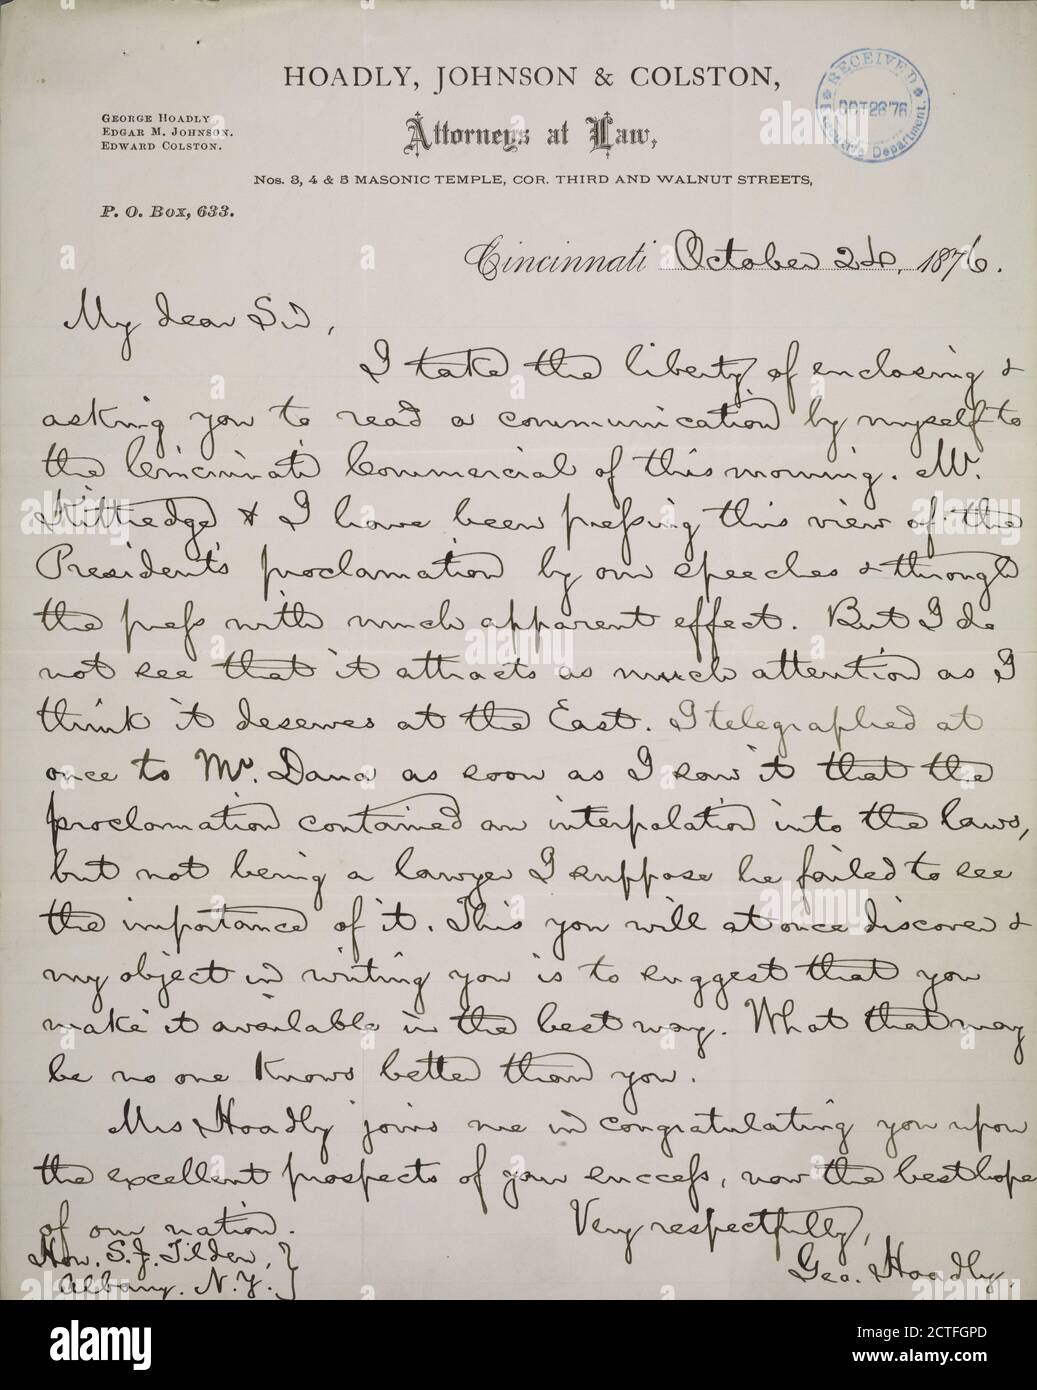 HOADLY, JOHNSON & COLSTON,
Attorneys at Law,
GEORGE HOADLY
EDGAR M. JOHNSON.
EDWARD COLSTON.
RECEIVED
OCT 26 76
Executive Department.
Nos. 3, 4 & 5 MASONIC TEMPLE, COR. THIRD AND WALNUT STREETS,
P. O. Box, 633.
Cincinnati October 24, 1876.
My dear Sir,
I take the liberty of enclosing &
asking you to read a communication by myself to
the Cincinnati Commercial of this morning. Mr.
Kittredge & I have been pressing this view of the
President's proclamation by our speeches & through
the press with much apparent effect. But I do
not see that it attracts as much attention as I
think it deserves at the East. I telegraphed at
once to Mr. Dana as soon as I saw it that the
proclamation contained an interpolation into the laws,
but not being a lawyer I suppose he failed to see
the importance of it. This you will at once discover &
my object in writing you is to suggest that you
make it available in the best way. What that may
be no one knows better than you.
Mrs Hoadly joins me in congratulating you upon
the excellent prospects of your success, now the best hope
of our nation.
Very respectfully,
Hon. S. J. Tilden, }
Albany. N. Y. }
Geo. Hoadly.
alamy
Image ID: 2CTFGPD
www.alamy.com